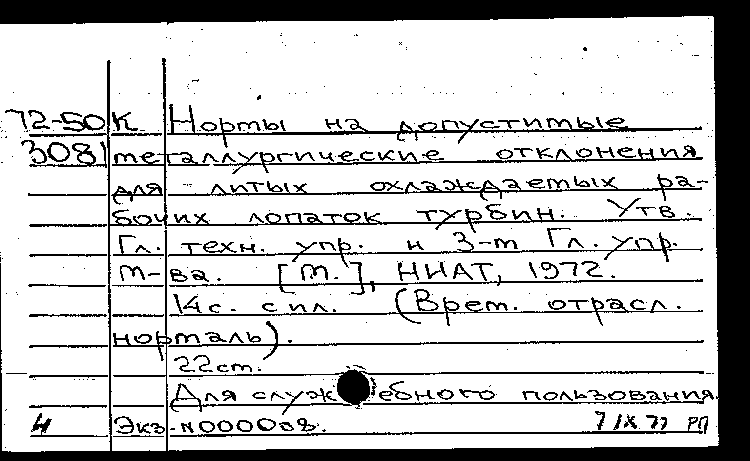 72-50К Нормы на допустимые
3081 металлургические отклонения
для литых охлаждаемых ра-
бочих лопаток турбин. Утв.
Гл. техн. упр. и 3-м Гл. упр.
м-ва. [М.], НИАТ, 1972.
14с. с ил. (Врем. отрасл.
нормаль).
22см.
Для служебного пользования
Экз. N000008. 7 IX 77 РП